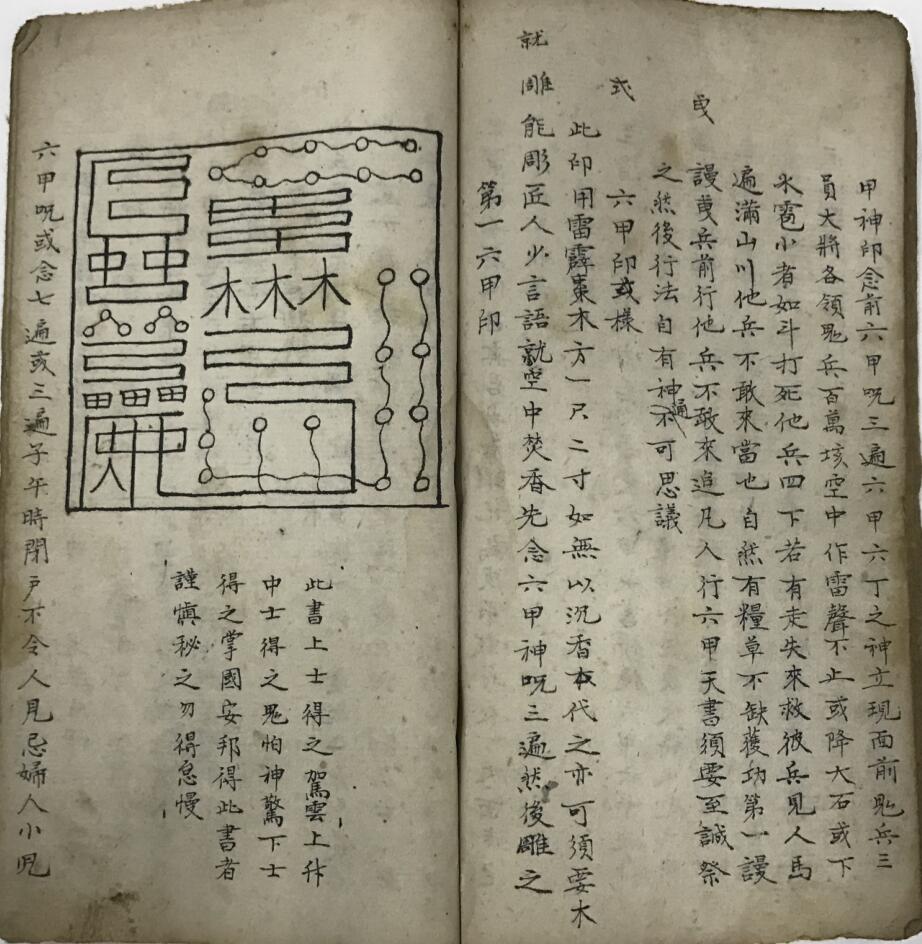 甲神印念前六甲咒三遍六甲六丁之神立現面前鬼兵三
員大將各領鬼兵百萬垓空中作雷聲不止或降大石或下
氷雹小者如斗打死他兵四下若有走失來救彼兵見人馬
遍滿山川他兵不敢來當也自然有糧草不缺獲功第一謾
謾曳兵前行他兵不敢來追凡人行六甲天書須要至誠祭
曳
之然後行法自有神通不可思議
六甲印或樣
式
此印用雷霹棗木方一尺二寸如無以沉香本代之亦可須要木
雕能彫匠人少言語就空中焚香先念六甲神咒三遍然後雕之
就
第一六甲印
木木木
此書上士得之駕雲上升
中士得之鬼怕神驚下士
得之掌國安邦得此書者
謹慎秘之勿得怠慢
六甲咒或念七遍或三遍子午時閉戶不令人見忌婦人小児